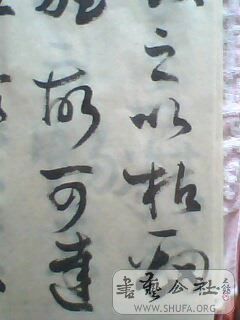 之以枯勁
故可達
書藝公社
WWW.SHUFA.ORG